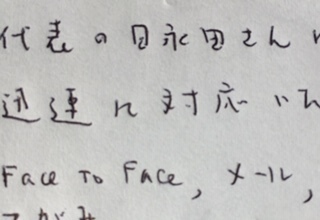 代表の日永田さん
迅速に対応い
Face To Face, メール,